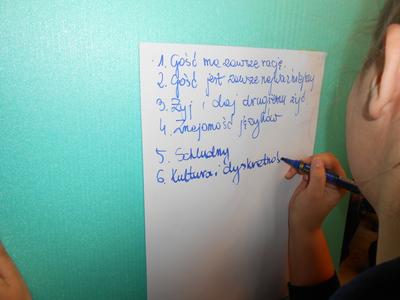 1. Gość ma zawsze rację.
2. Gość jest zawsze najważniejszy
3. Żyj i daj drugiemu żyć
4. Znajomość języków
5. Schludny
6. Kultura i dyskretnoś